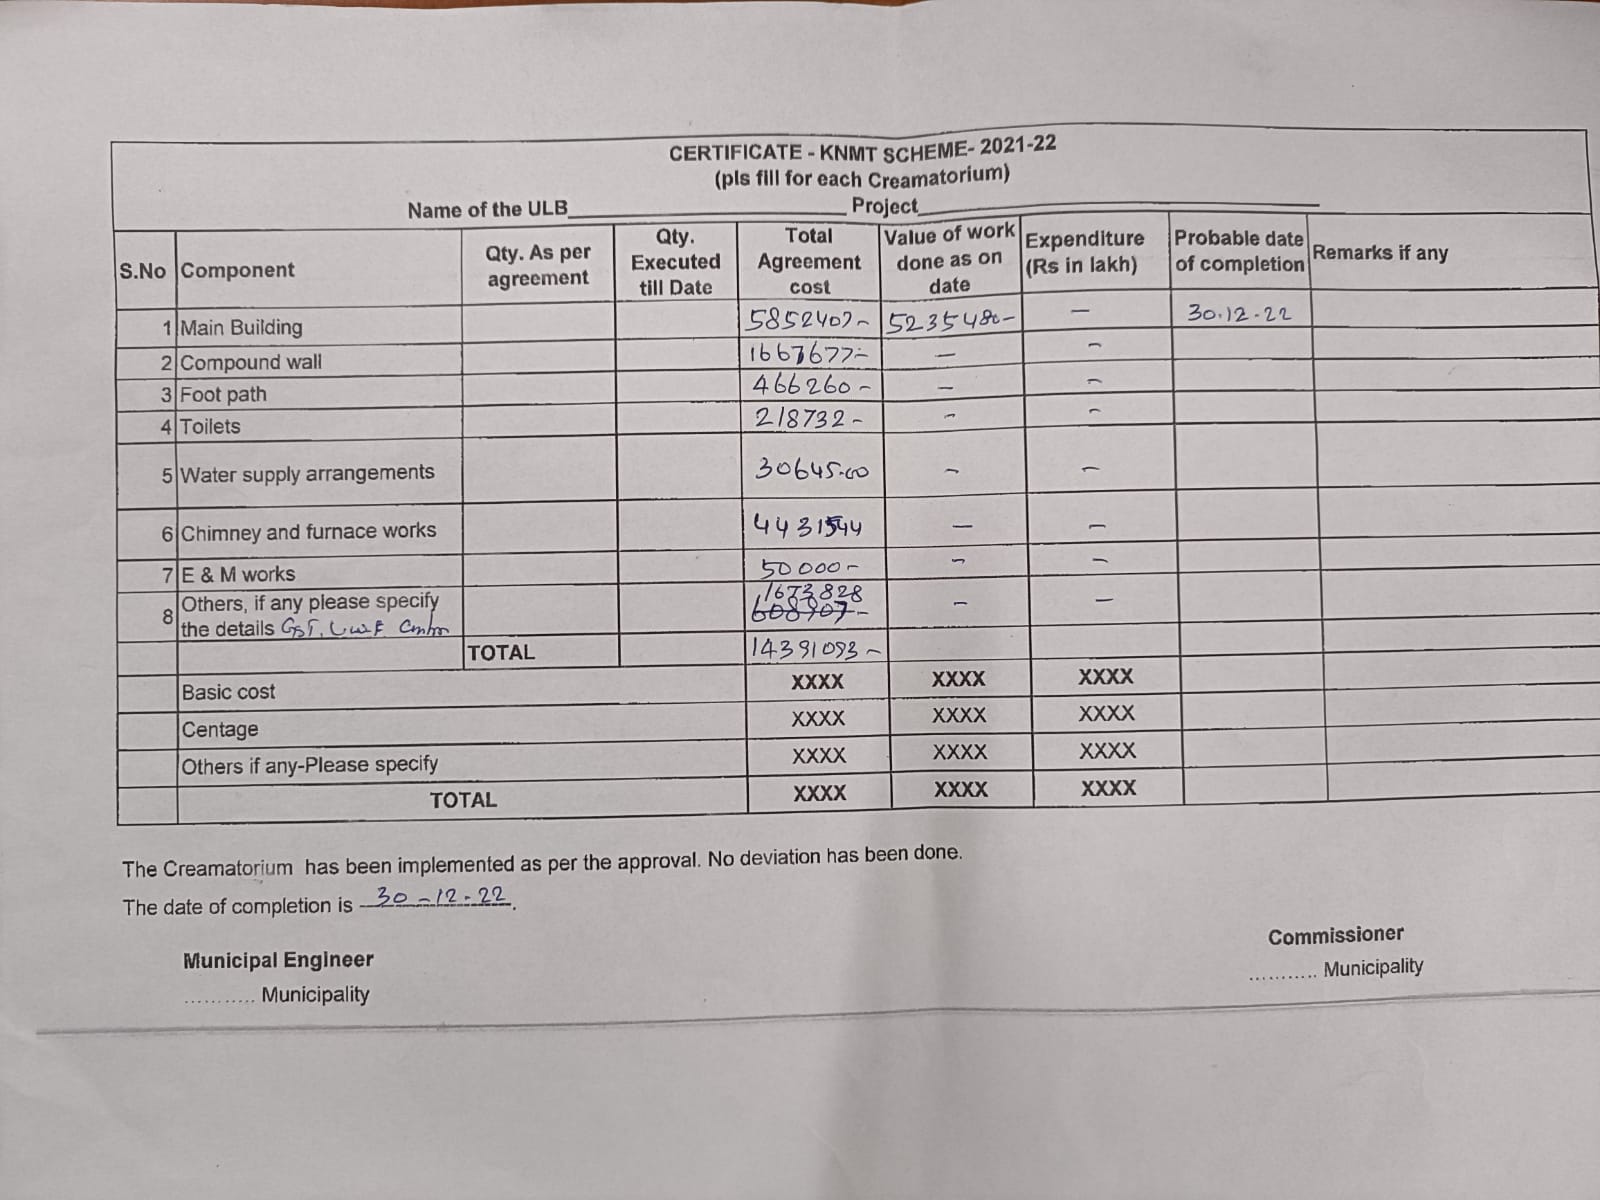 CERTIFICATE - KNMT SCHEME- 2021-22
(pls fill for each Creamatorium)
Name of the ULB____________ Project____________
S.No Component Qty. As per agreement Qty. Executed till Date Total Agreement cost Value of work done as on date Expenditure (Rs in lakh) Probable date of completion Remarks if any
1 Main Building 5852407- 5235480- - 30.12.22
2 Compound wall - -
3 Foot path 466260- - -
4 Toilets 218732- - -
5 Water supply arrangements 30645.00 - -
6 Chimney and furnace works 4431544 - -
7 E & M works 50000- - -
8 Others, if any please specify the details GST, LWF 1673828 608907- - -
TOTAL 14391093-
Basic cost XXXX XXXX XXXX
Centage XXXX XXXX XXXX
Others if any-Please specify XXXX XXXX XXXX
TOTAL XXXX XXXX XXXX
The Creamatorium has been implemented as per the approval. No deviation has been done.
The date of completion is 30-12-22.
Municipal Engineer
........... Municipality
Commissioner
........... Municipality